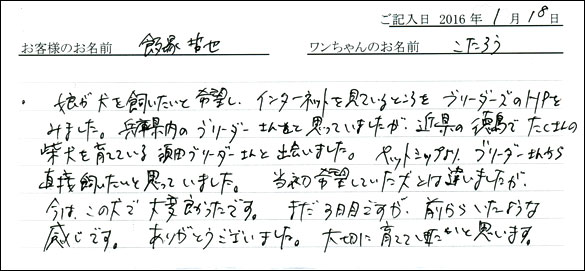 ご記入日 2016年 1月 18日
お客様のお名前 飯塚 哲也 ワンちゃんのお名前 こたろう
・娘が犬を飼いたいと希望し、インターネットを見ているところを ブリーダーズのHPを
みました。兵庫県内のブリーダーさんをと思っていましたが、近県の徳島で たくさんの
柴犬を育てている 須田ブリーダーさんと出会いました。ペットショップより、ブリーダーさんから
直接飼いたいと思っていました。当初希望していた犬とは違いましたが、
今は、この犬で大変良かったです。まだ3日目ですが、前からいたような
感じです。ありがとうございました。大切に育てて いきたいと思います。